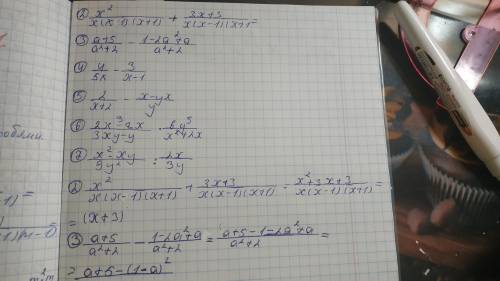 ② x²/x(x-1)(x+1) + 3x+3/x(x-1)(x+1) =
③ a+5/a²+2 - 1-2a²+a/a²+2
④ y/5x - 3/x-1
⑤ 2/x+2 - x-yx/y
⑥ 2x³-2x/3xy-y · 6y⁵/x²+2x
⑦ x²-xy/9y² : 2x/3y
② x²/x(x-1)(x+1) + 3x+3/x(x-1)(x+1) = x²+3x+3/x(x-1)(x+1) =
= (x+3)
③ a+5/a²+2 - 1-2a²+a/a²+2 = a+5-1-2a²+a/a²+2 =
= a+5-(1-a)²